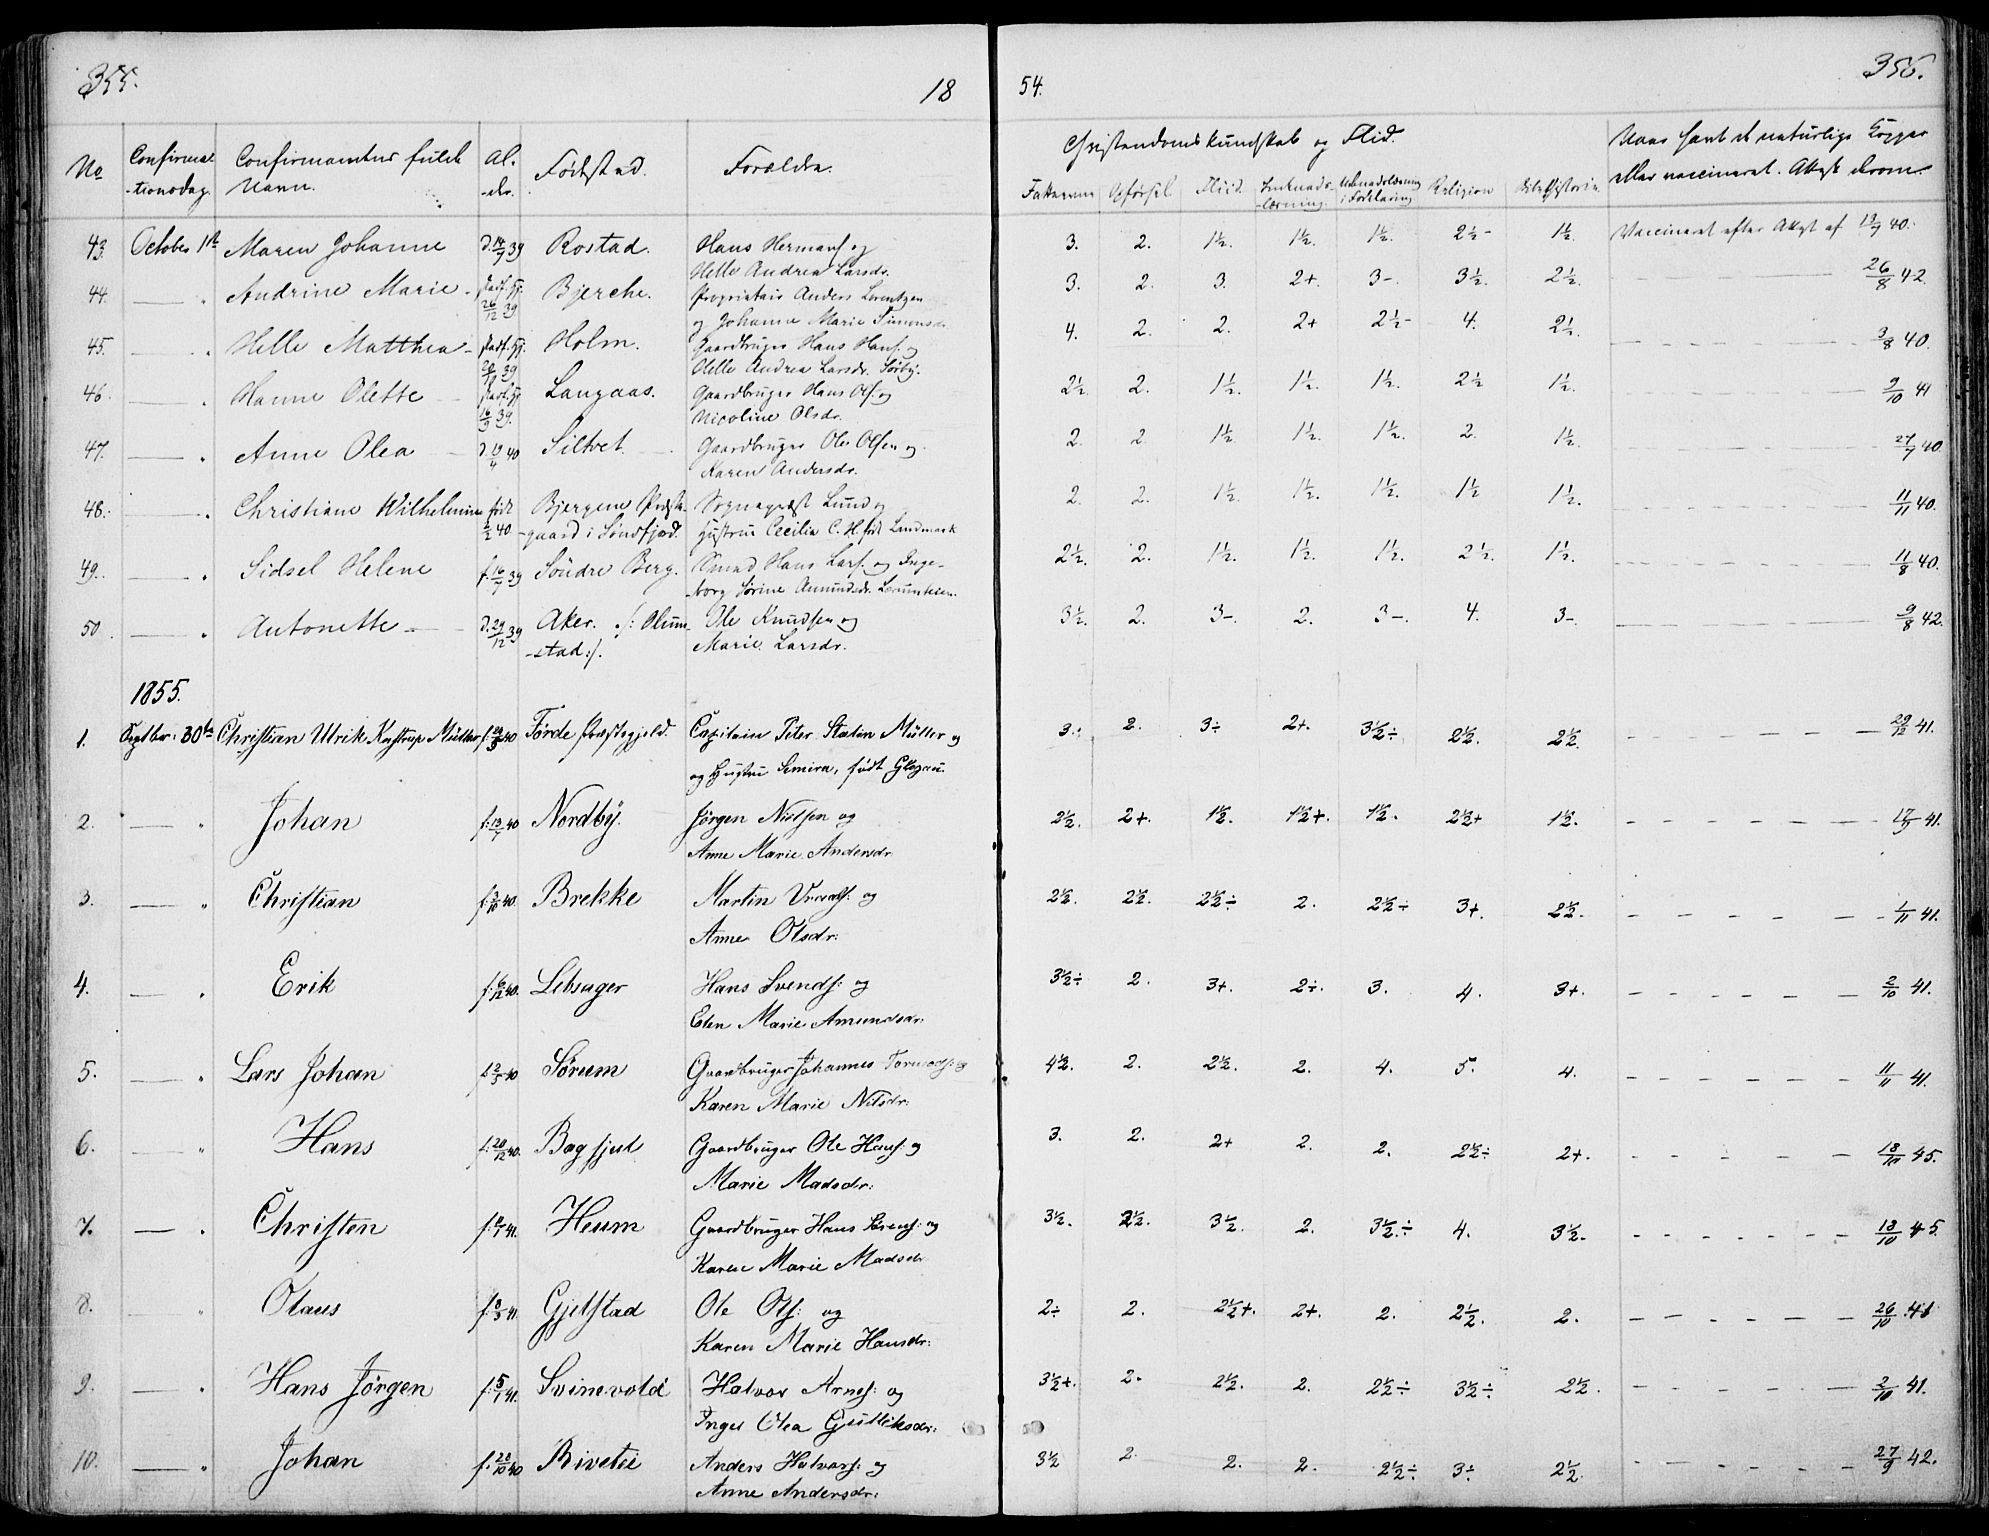 355.
18
54.
356.
No
Confirma-
-tionsdag.
Confirmantens fulde
Navn.
Al-
-der.
Fødested.
Forældre.
Christendomskundskab og Flid.
Fatteevne
Opførsel
Fliid.
Religion
Bibelhistorie
Naar havt de naturlige Kopper
eller vaccineret. Attest derom
43. October 1ste Maren Johanne d. 14/7 39 Rostad. Hans Hermans. og 3. 2. 1½. 1½. 1½. 2½- 1½. Vaccineret efter Attest af 19/7 40.
Helle Andrea Larsdr.
44. — " Andrine Marie - Bjerche. Proprietair Anders Lorentzen 3. 2. 3. 2+ 3- 3½. 2½. 26/8 42.
26/12 39 og Johanne Marie Simonsdr.
45. — " Helle Matthea - Holm. Gaardbruger Hans Hans. og 4. 2. 2. 2+ 2½- 4. 2½. 3/8 40.
Helle Andrea Larsdr. Sørby.
46. — " Hanne Olette Langaas. Gaardbruger Hans Ols. og 2½. 2. 1½. 1½. 1½. 2½ 1½. 9/10 41
16/9 39. Nicoline Olsdr.
47. — " Anne Olea d. 19/4 40 Siltvet. Gaardbruger Ole Olsen og 2. 2. 1½. 1½. 1½. 2. 1½. 27/7 40
Karen Andersdr.
48. — " Christiane Wilhelmine født Bjergene Præste- Sognepræst Lund og 2. 2. 1½. 1½. 1½. 1½ 1½. 11/11 40.
2/2 40 -gaard i Søndfjord. Hustrue Cecilia C. H. født Landmark
49. — " Sidsel Helene f. 16/7 39 Søndre Berg. Smed Hans Lars. og Inge- 2½. 2. 1½. 1½. 1½. 2½. 1½. 11/8 40.
-borg Sørine Amundsdr.
50. — " Antonette d. 29/12 39 Aker. /: Olum- Ole Knudsen og 3½. 2. 3-. 2. 3-. 4. 3-. 9/8 42.
-stad :/. Marie Larsdr.
1855.
1. Septbr: 30te Christian Ulrik Kastrup Müller Førde Præstegjeld. Capitain Peter Statin Müller og 3. 2. 3÷ 2+. 3½÷ 2½. 2½. 29/12 41.
og Hustru Semira, født Glogau.
2. — " Johan f: 13/7 40 Nordby. Jørgen Nielsen og 2½. 2+. 1½. 1½+. 1½. 2½+ 1½. 17/9 41.
Anne Marie Andersdr.
3. — " Christian f: 3/10 40. Brekke Martin og 2½. 2½. 2½÷ 2. 2½÷ 3+. 2½. 1/11 41.
Anne Olsdr:
4. — " Erik f: 6/12 40. Lebsager Hans Svends: og 3½÷ 2. 3+. 2÷. 3. 4. 3+. 2/10 41.
Elen Marie Amundsdr:
5. — " Lars Johan f: 2/5 40 Sørum Gaardbruger Johannes Tormods: og 4½. 2. 2½. 2. 4. 5. 4. 11/11 41.
Karen Marie Nilsdr:
6. — " Hans f: 20/12 40. Bagsjul Gaardbruger Ole Hans: og 3. 2. 2+ 2. 2. 2½÷ 2+. 18/10 45.
Marie Madsdr:
7. — " Christen Heum Gaardbruger Hans Sørens: og 3½. 2½. 3½. 2. 3½÷ 4. 3½. 18/10 45.
Karen Marie Madsdr.
8. — " Olaus f: 8/3 41. Gjelstad Ole Ols: og 2÷ 2. 2½+. 2+. 2. 2½. 2. 26/10 41
Karen Marie Hansdr:
9. — " Hans Jørgen f: 5/1 41. Svinevold Halvor Arnes: og 3½+. 2. 2½. 2. 2½÷ 3½÷ 2½. 2/10 41.
Inger Olea Gulliksdr:
10. — " Johan f: 28/10 40 Rivelie Anders Halvors: og 3½ 2. 2. 2. 2½÷ 3÷ 2½. 27/9 42.
Anne Andersdr: